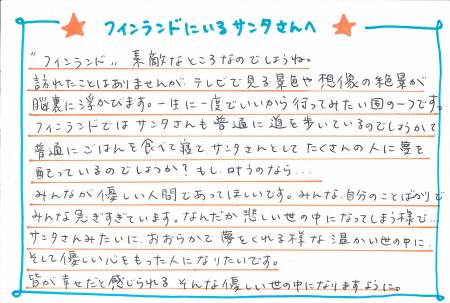 フィンランドにいるサンタさんへ
"フィンランド" 素敵なところなのでしょうね。
訪れたことはありませんが、テレビで見る景色や想像の絶景が
脳裏に浮かびます。一生に一度でいいから行ってみたい国の一つです。
フィンランドではサンタさんも普通に道を歩いているのでしょうか?
普通にごはんを食べて寝てサンタさんとしてたくさんの人に夢を
配っているのでしょうか?もし、叶うのなら…
みんなが優しい人間であってほしいです。みんな、自分のことばかりで
みんな急ぎすぎています。なんだか悲しい世の中になってしまう様で…
サンタさんみたいに、おおらかで夢をくれる様な温かい世の中に、
そして優しい心をもった人になりたいです。
皆が幸せだと感じられるそんな優しい世の中になりますように。